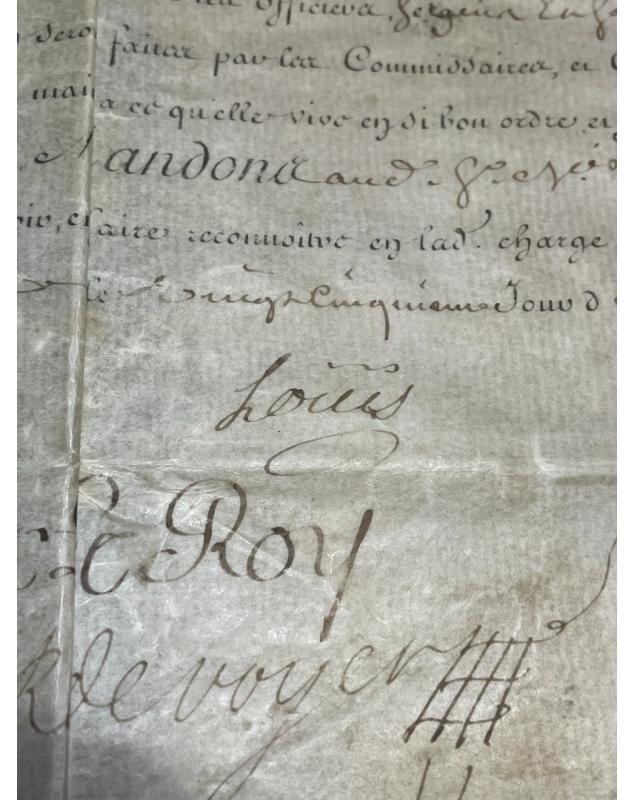 officiers, sergens
faites par les Commissaires, et
a ce qu'elle vive en si bon ordre, en
Mandons aud. Sr. de
faire reconnoitre en lad. charge
le vingt Cinquieme Jour d
Louis
Le Roy
R de voyer